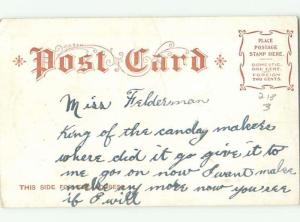 Post Card
PLACE
POSTAGE
STAMP HERE.
DOMESTIC,
ONE CENT.
FOREIGN
TWO CENTS.
Miss Felderman
218
3
King of the canday makers
where did it go give it to
me go on now I want make
THIS SIDE FOR
any more now you see
if I will